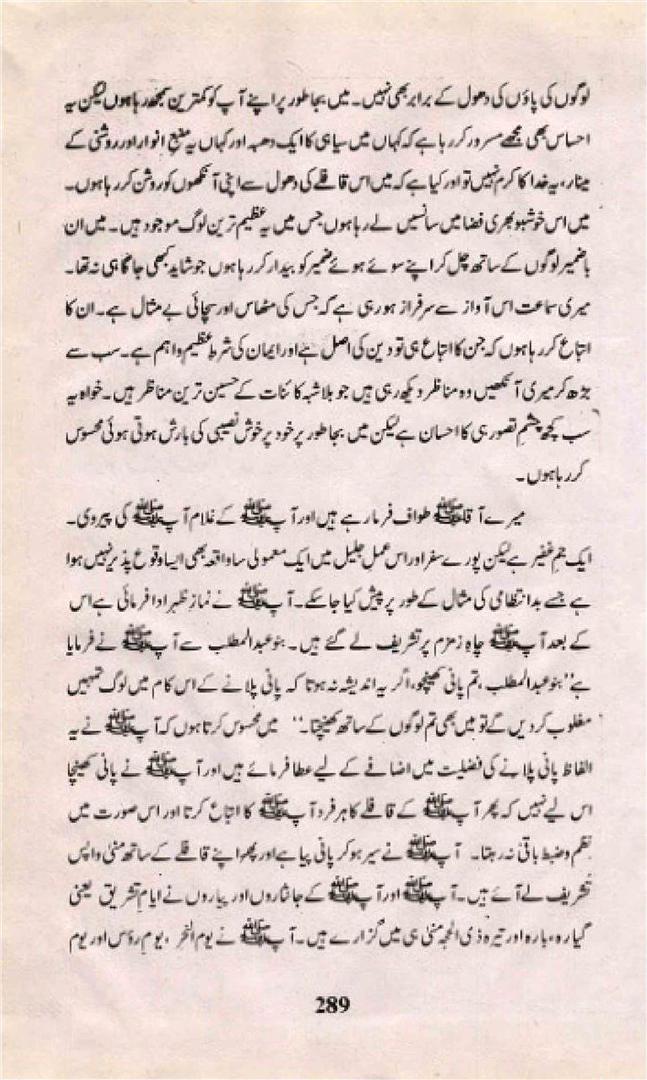 لوگوں کی پاؤں کی دھول کے برابر بھی نہیں۔ میں بجا طور پر اپنے آپ کو کمترین سمجھ رہا ہوں لیکن یہ
احساس بھی مجھے مسرور کر رہا ہے کہ کہاں میں سیاہی کا ایک دھبہ اور کہاں یہ منبعِ انوار اور روشنی کے
مینار، یہ خدا کا کرم نہیں تو اور کیا ہے کہ میں اس قافلے کی دھول سے اپنی آنکھوں کو روشن کر رہا ہوں۔
میں اس خوشبو بھری فضا میں سانسیں لے رہا ہوں جس میں یہ عظیم ترین لوگ موجود ہیں۔ میں ان
باضمیر لوگوں کے ساتھ چل کر اپنے سوئے ہوئے ضمیر کو بیدار کر رہا ہوں جو شاید کبھی جاگا ہی نہ تھا۔
میری سماعت اس آواز سے سرفراز ہو رہی ہے کہ جس کی مٹھاس اور سچائی بے مثال ہے۔ ان کا
اتباع کر رہا ہوں کہ جن کا اتباع ہی تو دین کی اصل ہے اور ایمان کی شرطِ عظیم و اہم ہے۔ سب سے
بڑھ کر میری آنکھیں وہ مناظر دیکھ رہی ہیں جو بلاشبہ کائنات کے حسین ترین مناظر ہیں۔ خواہ یہ
سب کچھ چشمِ تصور ہی کا احسان ہے لیکن میں بجا طور پر خود پر خوش نصیبی کی بارش ہوتی ہوئی محسوس
کر رہا ہوں۔
میرے آقا ﷺ طواف فرما رہے ہیں اور آپ ﷺ کے غلام آپ ﷺ کی پیروی۔
ایک جمِ غفیر ہے لیکن پورے سفر اور اس عملِ جلیل میں ایک معمولی سا واقعہ بھی ایسا وقوع پذیر نہیں ہوا
ہے جسے بدانتظامی کی مثال کے طور پر پیش کیا جا سکے۔ آپ ﷺ نے نمازِ ظہر ادا فرمائی ہے اس
کے بعد آپ ﷺ چاہِ زمزم پر تشریف لے گئے ہیں۔ بنو عبدالمطلب سے آپ ﷺ نے فرمایا
ہے ’’بنو عبدالمطلب، تم پانی کھینچو، اگر یہ اندیشہ نہ ہوتا کہ پانی پلانے کے اس کام میں لوگ تمہیں
مغلوب کر دیں گے تو میں بھی تم لوگوں کے ساتھ کھینچتا۔‘‘ میں محسوس کرتا ہوں کہ آپ ﷺ نے یہ
الفاظ پانی پلانے کی فضیلت میں اضافے کے لیے عطا فرمائے ہیں اور آپ ﷺ نے پانی کھینچا
اس لیے نہیں کہ پھر آپ ﷺ کے قافلے کا ہر فرد آپ ﷺ کا اتباع کرتا اور اس صورت میں
نظم و ضبط باقی نہ رہتا۔ آپ ﷺ نے سیر ہو کر پانی پیا ہے اور پھر اپنے قافلے کے ساتھ منیٰ واپس
تشریف لے آئے ہیں۔ آپ ﷺ اور آپ ﷺ کے جانثاروں اور پیاروں نے ایامِ تشریق یعنی
گیارہ، بارہ اور تیرہ ذی الحجہ منیٰ ہی میں گزارے ہیں۔ آپ ﷺ نے یوم النحر، یومِ رؤس اور یوم
289